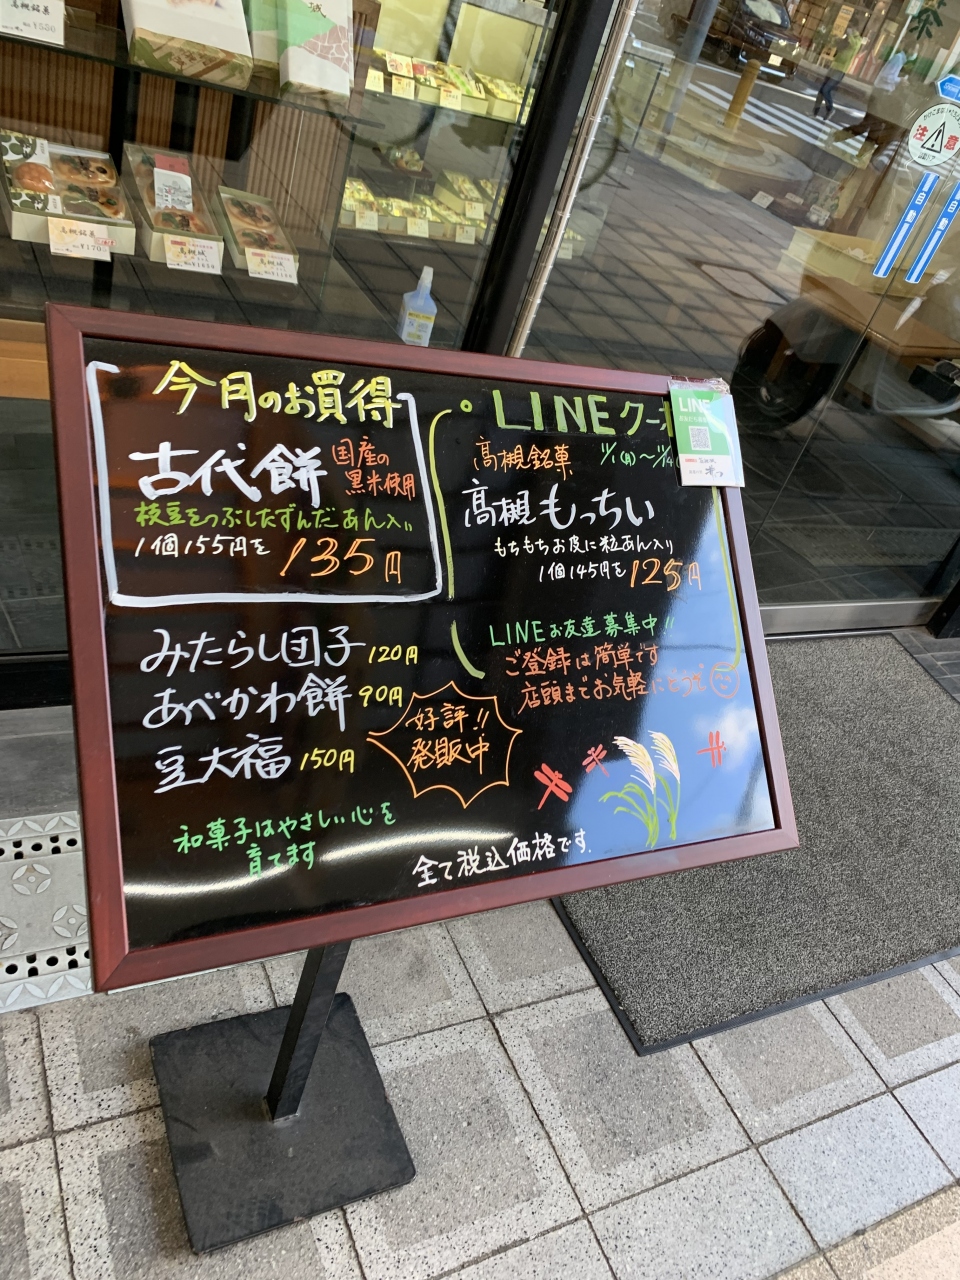 今月のお買得
古代餅
国産の
黒米使用
枝豆をつぶしたずんだあん入り
1個155円を
135円
みたらし団子 120円
あべかわ餅 90円
豆大福 150円
好評!!
発販中
和菓子はやさしい心を
育てます
全て税込価格です.
LINEクーポ
高槻銘菓
11/1(月)〜11/4
高槻もっちぃ
もちもちお皮に粒あん入り
1個145円を
125円
LINEお友達募集中!!
ご登録は簡単です
店頭までお気軽にどうぞ
LINE
高槻銘菓
¥170
高槻城
高槻城
注意
自動
自動